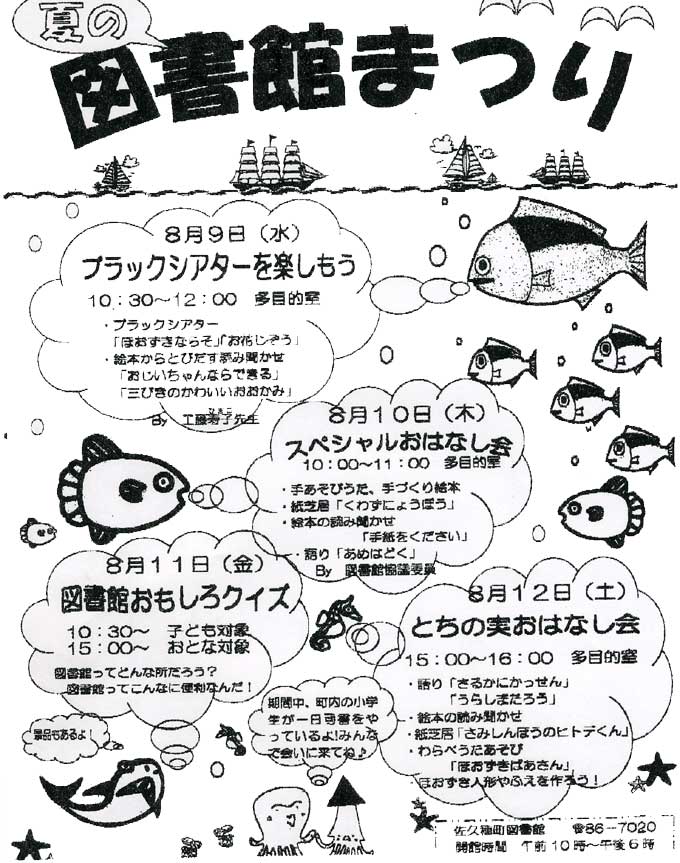 夏の
図書館まつり
8月9日（水）
ブラックシアターを楽しもう
10：30～12：00　多目的室
・ブラックシアター
「ほおずきならそ」「お花じぞう」
・絵本からとびだす読み聞かせ
「おじいちゃんならできる」
「三びきのかわいいおおかみ」
By　工藤 先生
8月10日（木）
スペシャルおはなし会
10：00～11：00　多目的室
・手あそびうた、手づくり絵本
・紙芝居「くわずにょうぼう」
・絵本の読み聞かせ
「手紙をください」
・語り「あめはどく」
By　図書館協議委員
8月11日（金）
図書館おもしろクイズ
10：30～　子ども対象
15：00～　おとな対象
図書館ってどんな所だろう？
図書館ってこんなに便利なんだ！
景品もあるよ！
期間中、町内の小学
生が一日司書をや
っているよ！みんな
で会いに来てね♪
8月12日（土）
とちの実おはなし会
15：00～16：00　多目的室
・語り「さるかにかっせん」
「うらしまたろう」
・絵本の読み聞かせ
・紙芝居「さみしんぼうのヒトデくん」
・わらべうたあそび
「ほおずきばあさん」
・ほおずき人形やふえを作ろう！
佐久穂町図書館　☎86－7020
開館時間　午前10時～午後6時